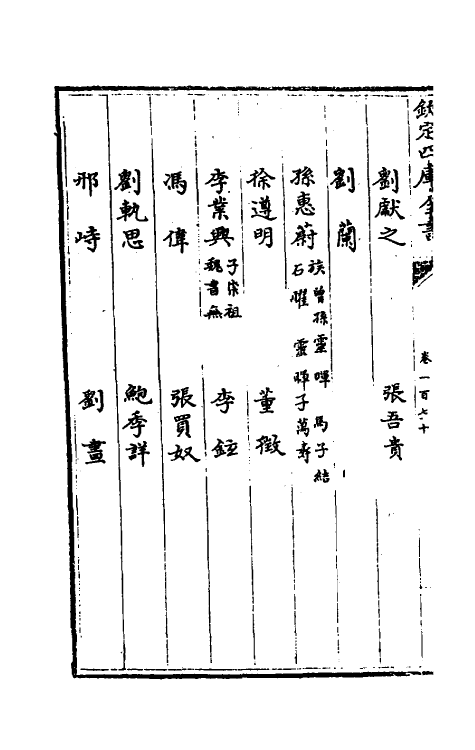 欽定四庫全書
卷一百七十
劉獻之 張吾貴
劉蘭
孫惠蔚 族曾孫靈暉 馬子結
石曜 靈暉子萬壽
徐遵明 董徵
李業興 子崇祖
魏書無
李鉉
馮偉 張買奴
劉軌思 鮑季詳
邢峙 劉晝